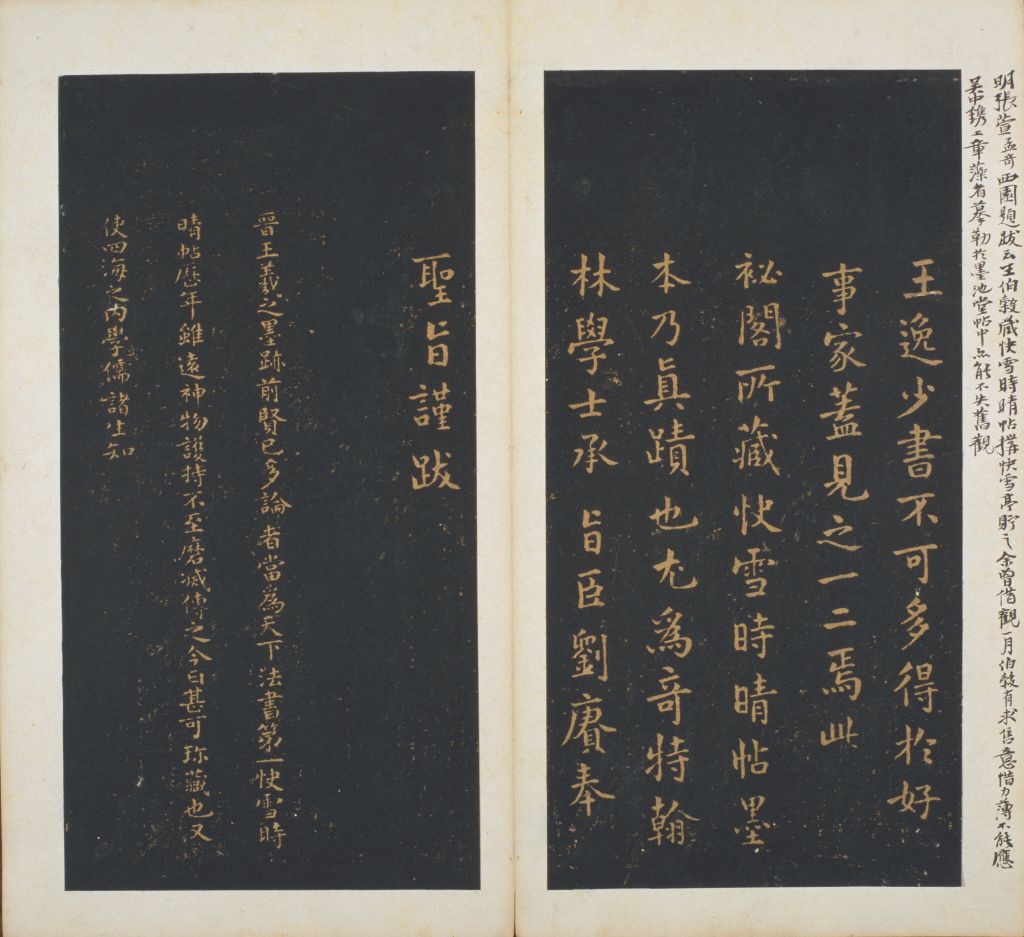 明張萱孟奇西園題跋云王伯穀藏快雪時晴帖搆快雪亭貯之余曾借觀一月伯穀有求售意惜力薄不能應
吴中鐫工章藻者摹勒於墨池堂帖中亦能不失舊觀
王逸少書不可多得於好
事家蓋見之一二焉此
祕閣所藏快雪時晴帖墨
本乃真蹟也尤為奇特翰
林學士承旨臣劉賡奉
聖旨謹跋
晉王羲之墨跡前賢已多論者當為天下法書第一快雪時
晴帖歷年雖遠神物護持不至磨滅傳之今日甚可珎藏也又
使四海之内學儒諸生知